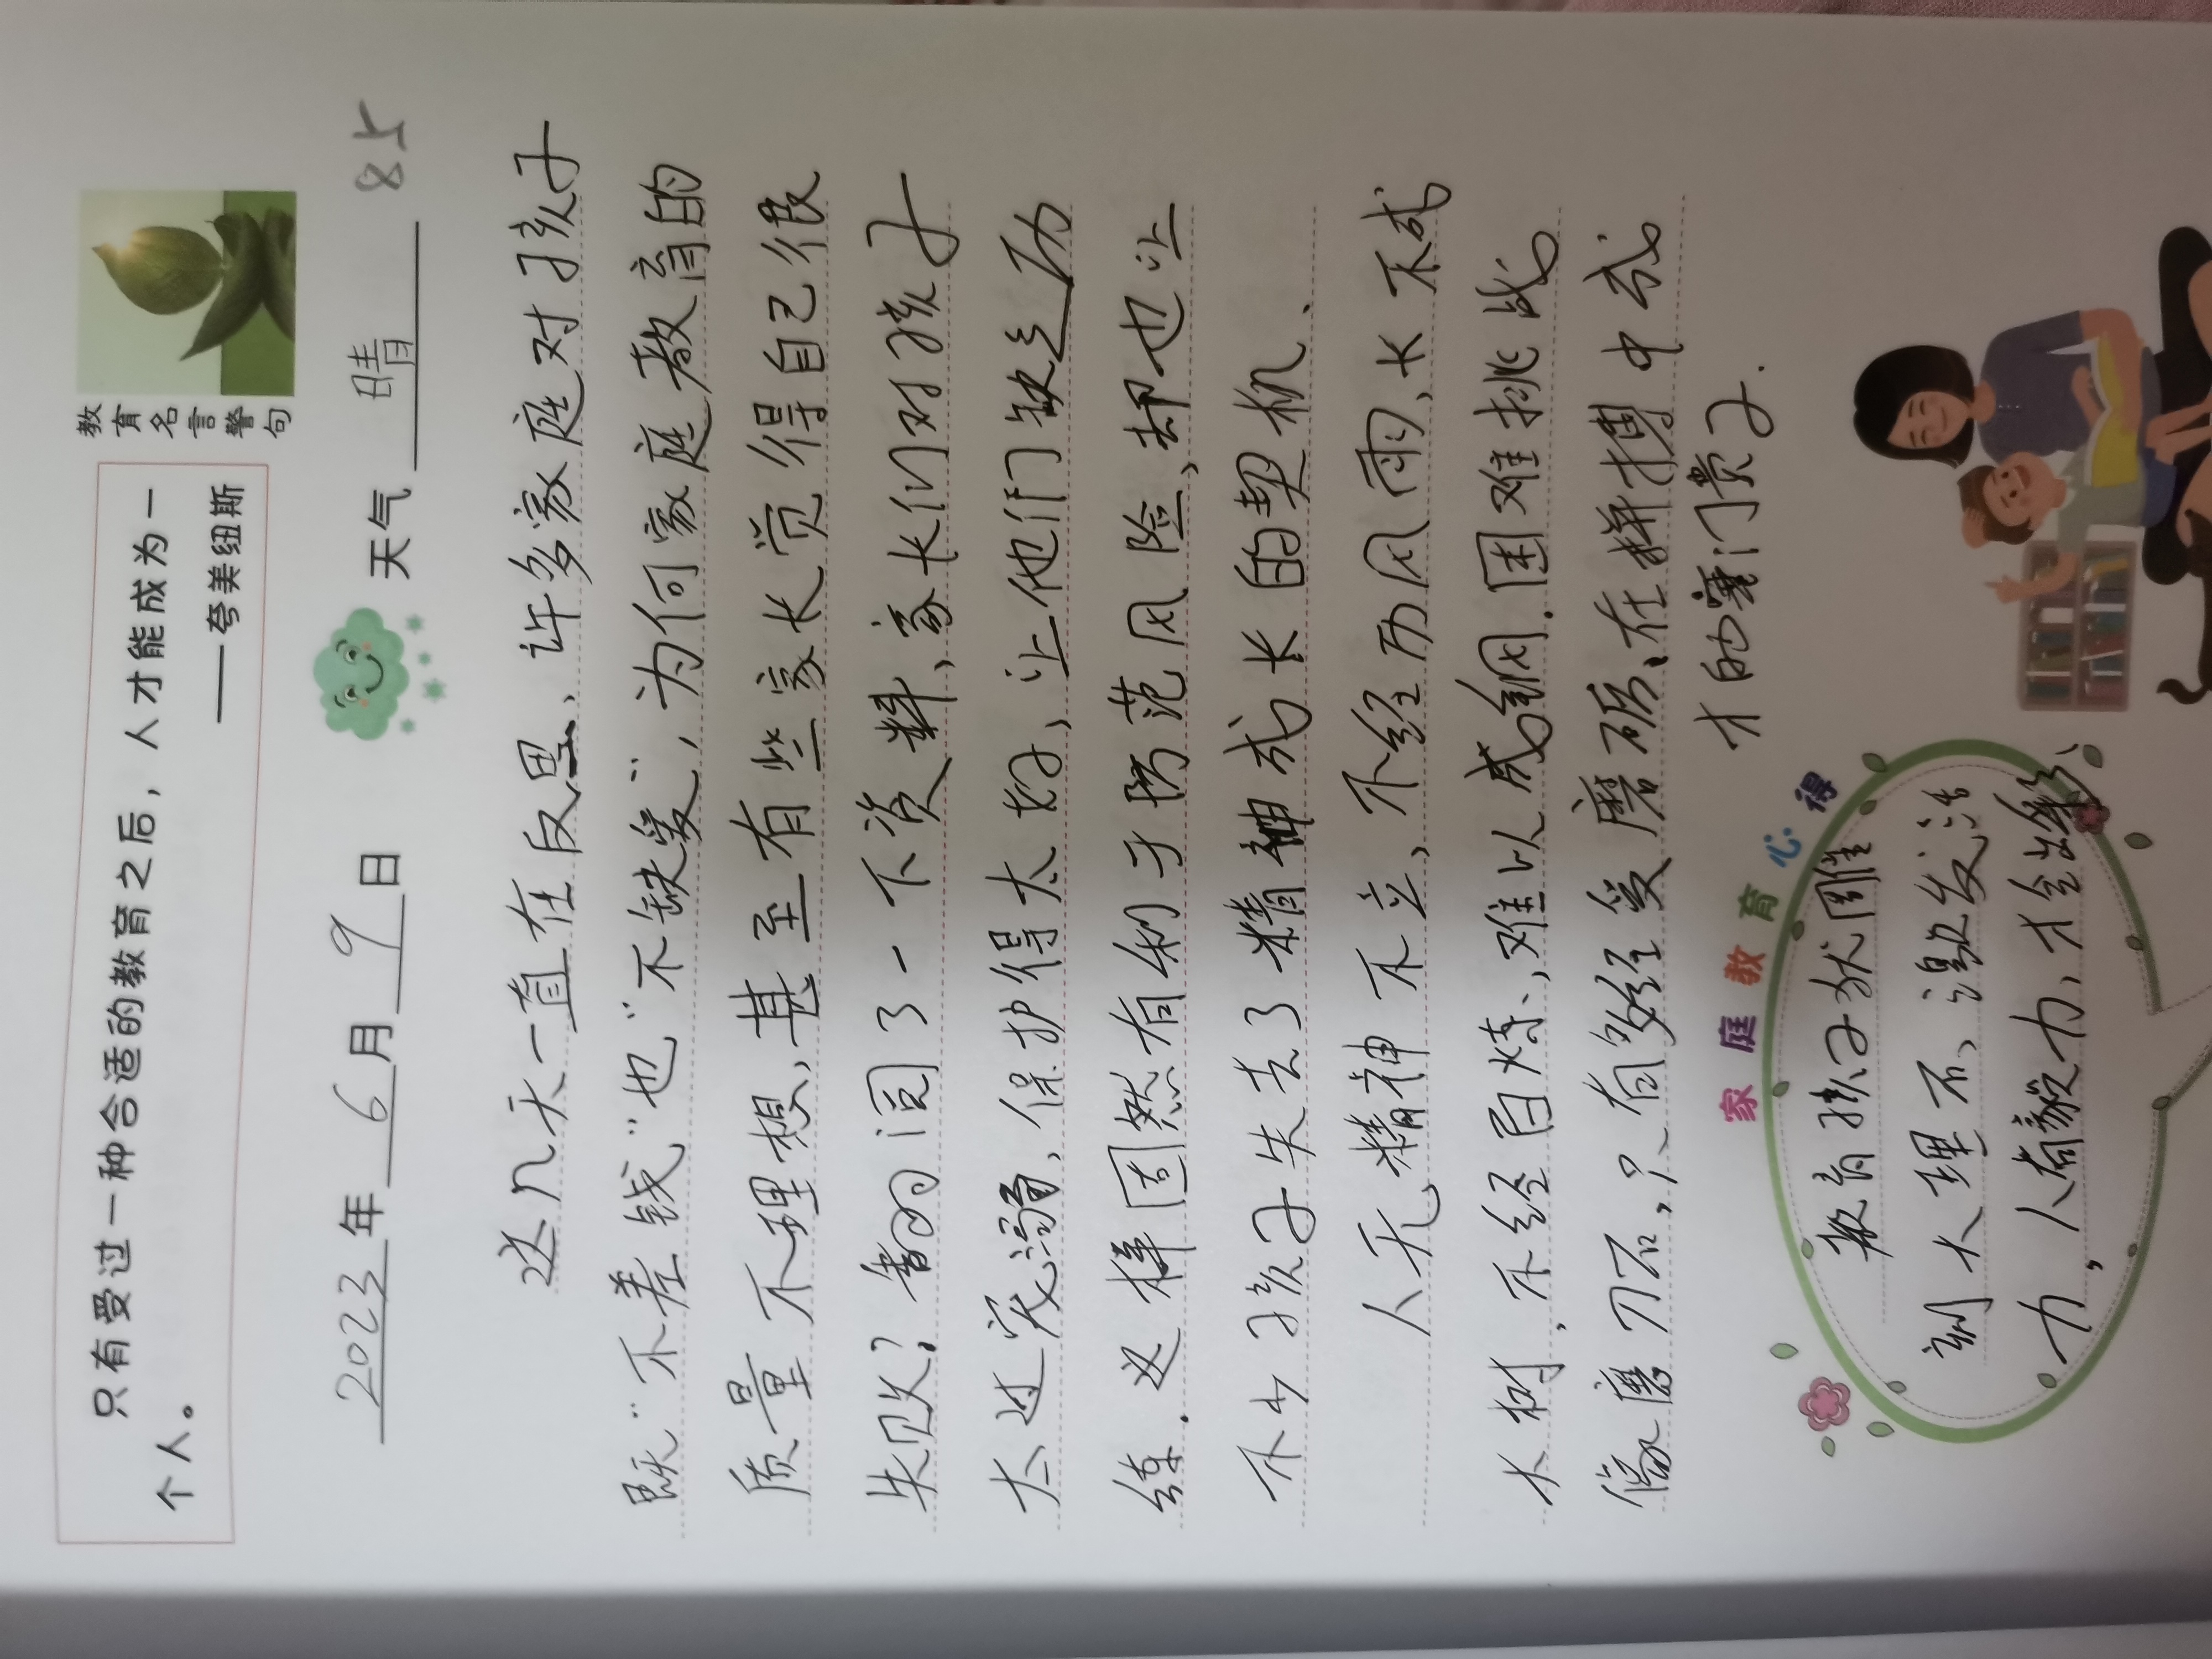 教育名言警句
只有受过一种合适的教育之后，人才能成为一
个人。
——夸美纽斯
2023年6月9日 天气 晴 85
这几天一直在反思、许多家庭对孩子
既"不差钱"也"不缺爱"，为何家庭教育的
质量不理想、甚至有些家长觉得自己很
失败？翻阅了一下资料、家长们对孩子
太过宠溺、保护得太好、让他们缺乏历
练．这样固然有利于防范风险、却也让
不少孩子失去了精神成长的契机、
人无精神不立、不经历风雨、长不成
大树．不经百炼、难以成钢．困难挑战
像磨刀石，只有经受磨砺、在拼搏中成
才的寒门贵子．
家庭教育心得
教育孩子犹雕
刻大理石、激发活
力，人有毅力、才会出彩、